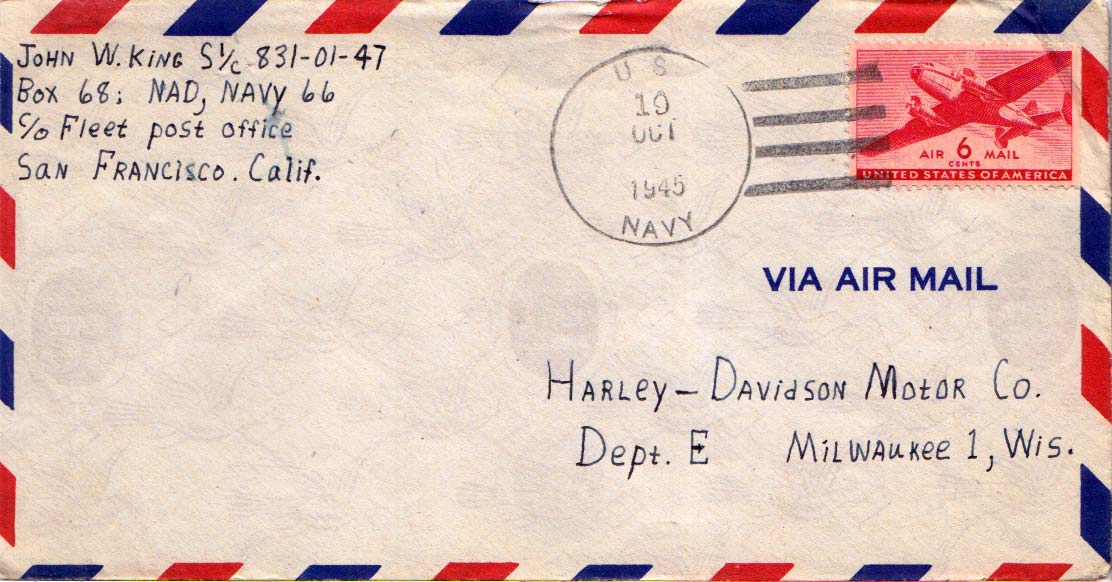 John W. King S 1/c 831-01-47
Box 68; NAD, NAVY 66
c/o Fleet post office
San Francisco. Calif.
U S
19
OCT
1945
NAVY
AIR 6 MAIL
CENTS
UNITED STATES OF AMERICA
VIA AIR MAIL
Harley-Davidson Motor Co.
Dept. E Milwaukee 1, Wis.